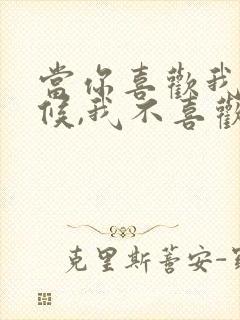 當你喜歡我
候,我不喜歡
克里斯蒂安-